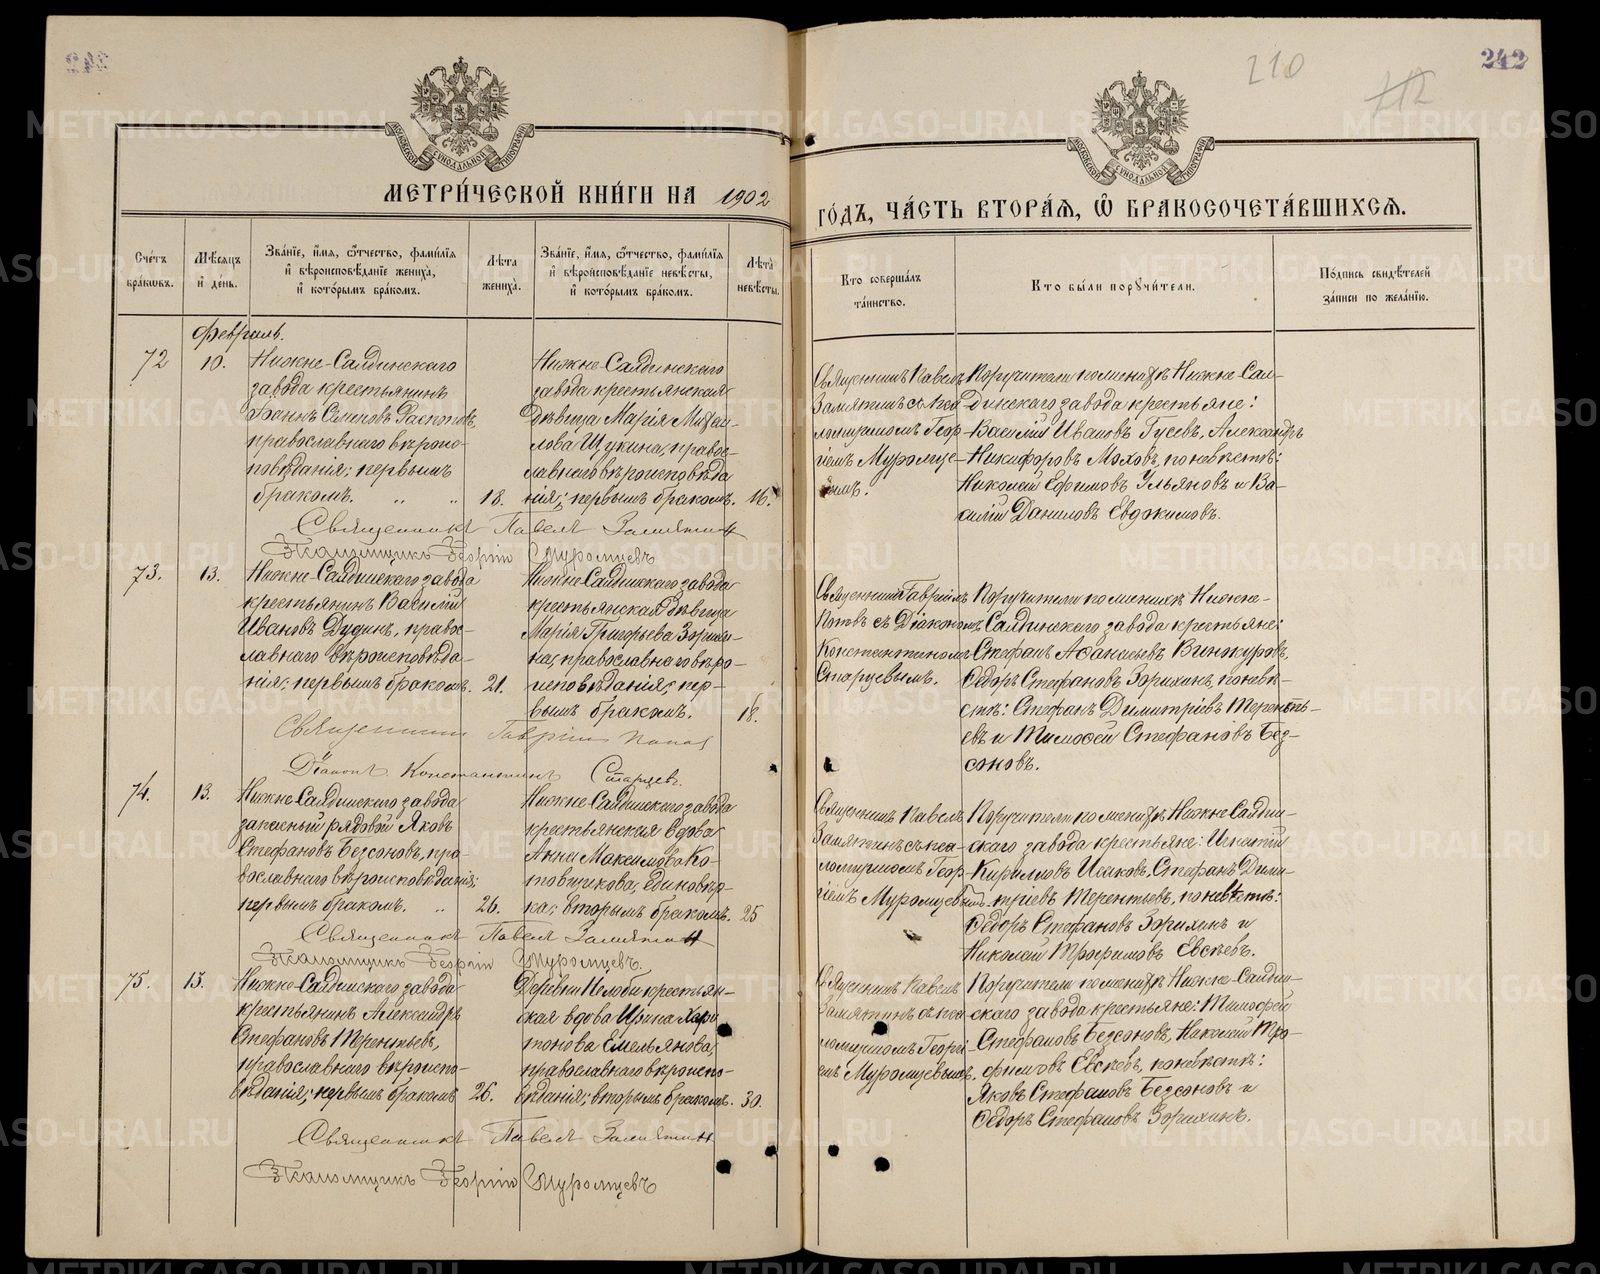 242
210
212
МЕТРИ́ЧЕСКОЙ КНИ́ГИ НА 1902
ГО́ДЪ, ЧА́СТЬ ВТОРА́Я, Ѽ БРАКОСОЧЕТА́ВШИХСЯ.
Сче́тъ бра́ковъ.
Мѣ́сяцъ и҆ де́нь.
Зва́нїе, и҆́мя, ѻ҆́тчество, фами́лїя и҆ вѣроисповѣ́данїе жениха̀, и҆ кото́рымъ бра́комъ.
Лѣ́та жениха̀.
Зва́нїе, и҆́мя, ѻ҆́тчество, фами́лїя и҆ вѣроисповѣ́данїе невѣ́сты, и҆ кото́рымъ бра́комъ.
Лѣ́та невѣ́сты.
Кто соверша́лъ та́инство.
Кто бы́ли порꙋчи́тели.
По́дпись свидѣ́телей за́писи по жела́нїю.
Февраль.
72
10.
Нижне-Салдинскаго
завода крестьянинъ
православнаго вѣроис-
повѣданія; первымъ
бракомъ. " "
18.
Нижне-Салдинскаго
завода крестьянская
дѣвица Марія Михаи-
лова Щукина, правос-
лавнаго вѣроисповѣда
нія; первымъ бракомъ.
16.
Священникъ Павелъ
Замятинъ съ пса-
ломщикомъ Геор-
гіемъ Муромце-
вымъ.
Поручители по женихѣ Нижне-Сал-
динскаго завода крестьяне:
Василій Ивановъ Гусевъ, Александръ
Никифоровъ Моховъ, по невѣстѣ:
Николай Ефимовъ Ульяновъ и Ва-
силій Даниловъ Евдокимовъ.
Священникъ Павелъ Замятинъ
Псаломщикъ Георгій Муромцевъ
73.
13.
Нижне-Салдинскаго завода
крестьянинъ Василій
Ивановъ Дудинъ, правос-
лавнаго вѣроисповѣда-
нія; первымъ бракомъ.
21.
Нижне-Салдинскаго завода
крестьянская дѣвица
Марія Григорьева Зорихи-
на, православнаго вѣро-
исповѣданія; пер-
вымъ бракомъ.
18.
Священникъ Гавріилъ
Поповъ съ Діакономъ
Константиномъ
Старцевымъ.
Поручители по женихѣ Нижне-
Салдинскаго завода крестьяне:
Стефанъ Аѳанасьевъ Винокуровъ,
Ѳедоръ Стефановъ Зорихинъ, по невѣ-
стѣ: Стефанъ Димитріевъ Терентъ-
евъ и Тимоѳей Стефановъ Без-
соновъ.
Священникъ Гавріилъ Поповъ
Діаконъ Константинъ Старцевъ
74.
13.
Нижне-Салдинскаго завода
запасный рядовой Яковъ
Стефановъ Безсоновъ, пра-
вославнаго вѣроисповѣданія;
первымъ бракомъ. "
26.
Нижне-Салдинскаго завода
крестьянская вдова
Анна Максимова Ко-
товщикова, единовѣр-
ка; вторымъ бракомъ.
25
Священникъ Павелъ
Замятинъ съ пса-
ломщикомъ Геор-
гіемъ Муромцевымъ.
Поручители по женихѣ Нижне-Салдин-
скаго завода крестьяне: Игнатій
Кирилловъ Исаковъ, Стефанъ Дими-
тріевъ Терентьевъ, по невѣстѣ:
Ѳедоръ Стефановъ Зорихинъ и
Николай Трофимовъ Евсѣевъ.
Священникъ Павелъ Замятинъ
Псаломщикъ Георгій Муромцевъ.
75.
13.
Нижне-Салдинскаго завода
крестьянинъ Александръ
Стефановъ Терентьевъ,
православнаго вѣроиспо-
вѣданія; первымъ бракомъ
26.
Деревни Нелоби крестьян-
ская вдова Ирина Хари
тонова Емельянова,
православнаго вѣроиспо-
вѣданія; вторымъ бракомъ.
30.
Священникъ Павелъ
Замятинъ съ пса-
ломщикомъ Георгі-
емъ Муромцевымъ.
Поручители по женихѣ Нижне-Салдин-
скаго завода крестьяне: Тимоѳей
Стефановъ Безсоновъ, Николай Тро-
фимовъ Евсѣевъ, по невѣстѣ:
Яковъ Стефановъ Безсоновъ и
Ѳедоръ Стефановъ Зорихинъ.
Священникъ Павелъ Замятинъ
Псаломщикъ Георгій Муромцевъ
METRIKI.GASO-URAL.RU